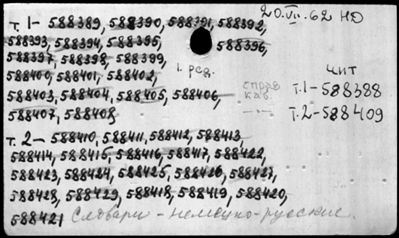 20.VII.62 НД
т. 1 - 588389, 588390, 588391, 588392,
588393, 588394, 588395, 588396,
588397, 588398, 588399,
588400, 588401, 588402, 1. ред.
588403, 588404, 588405, 588406,
588407, 588408
справ
каб.
ЧИТ
т. 1 - 588388
т. 2 - 588409
т. 2 - 588410, 588411, 588412, 588413,
588414, 588415, 588416, 588417, 588422,
588423, 588424, 588425, 588426, 588427,
588428, 588429, 588418, 588419, 588420,
588421 Словари - немецко-русские.